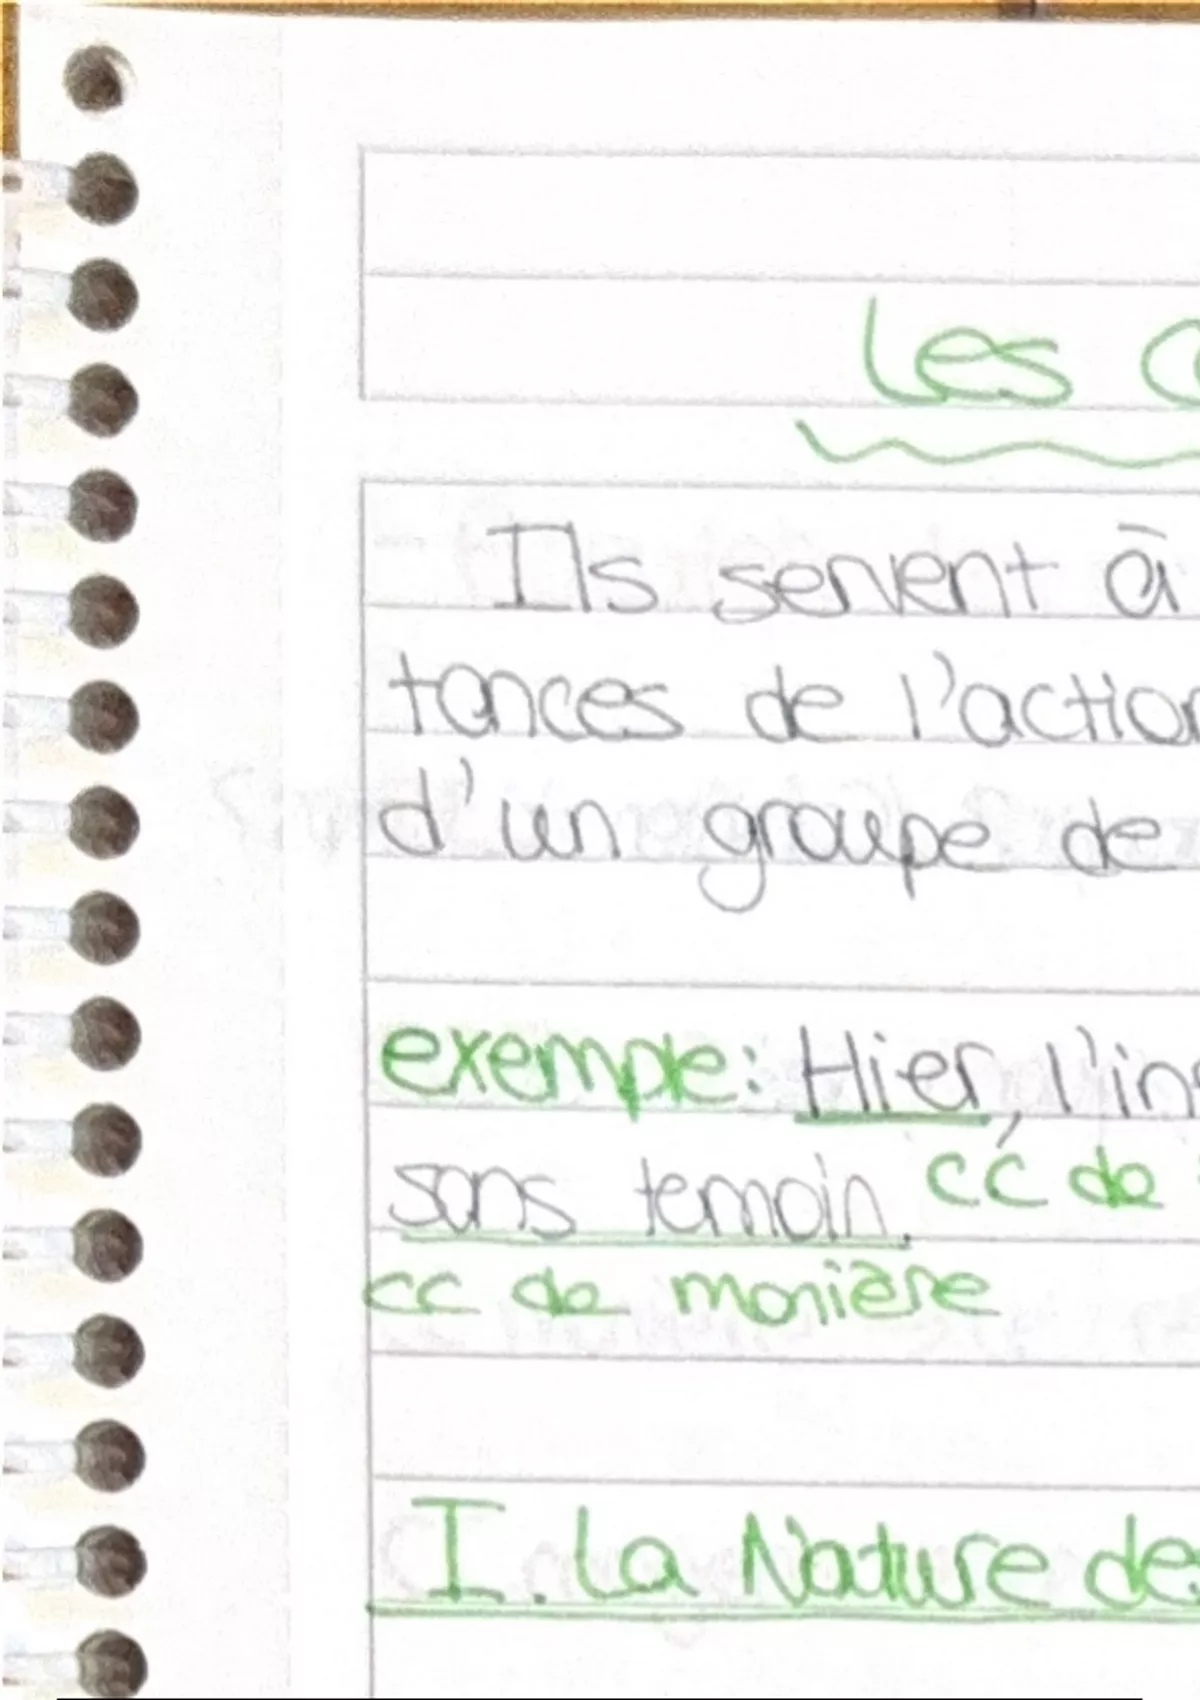 les
Ils servent à
tances de l'action
d'un groupe de
exemple: Hier, l'ins
sans temoin. cc de
cc de manière
I. la Nature des